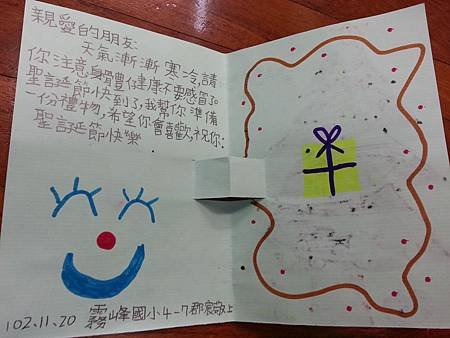 親愛的朋友:
天氣漸漸寒冷,請
你注意身體健康不要感冒了。
聖誕節快到了,我幫你準備
一份禮物,希望你會喜歡,祝你:
聖誕節快樂
102.11.20 霧峰國小4-7郡宸敬上